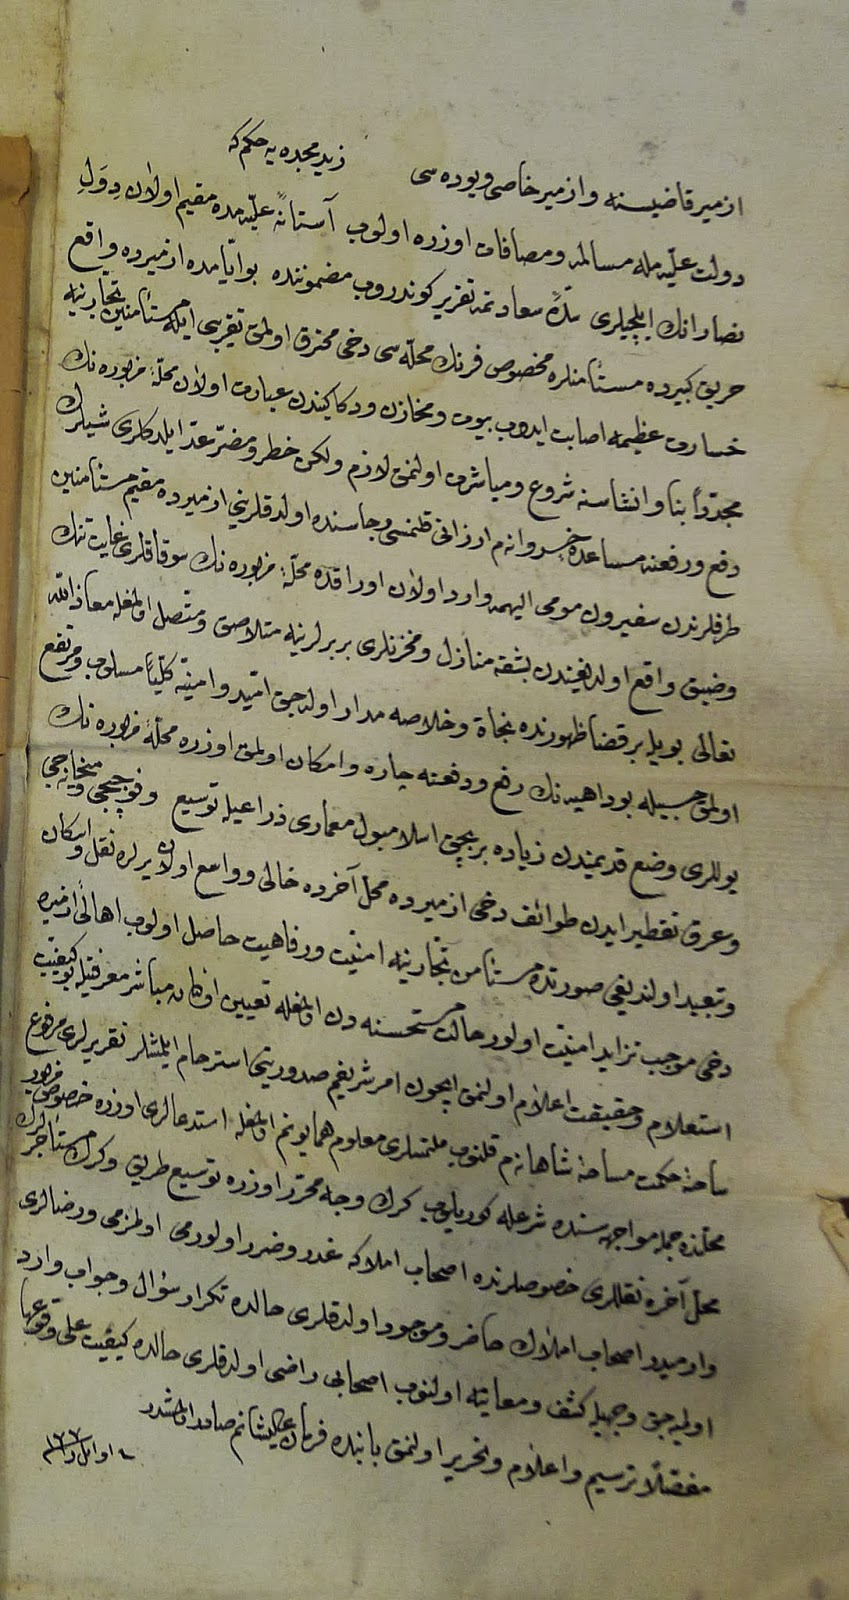 ازمیر قاضیسنه و ازمیر خاصی ویوده سی زید مجده یه حکم که
دولت علیه مله مسالمه و مصافات اوزره اولوب آستانهٔ علیه مده مقیم اولان دول
نصارانك ایلچیلری سدهٔ سعادتمه تقریر کوندروب مضموننده بو ایامده ازمیرده واقع
حریق کبیرده مستأمنلره مخصوص فرنك محله سی دخی محترق اولمق تقریبی ایله مستأمنین تجارینه
خسارت عظیمه اصابت ایدوب بیوت و مخازن و دکاکیندن عبارت اولان محلهٔ مزبوره نك
مجدداً بنا و انشاسنه شروع و مباشرت اولنمق لازم ولکن خطر و مضر عد ایلدکلری شیلرك
دفع و رفعنه مساعدهٔ خسروانه م ارزانی قلنمسی رجاسنده اولدقلرینی ازمیرده مقیم مستأمنین
طرفلرندن سفیرون مومی الیهمه وارد اولان اوراقده محلهٔ مزبوره نك سوقاقلری غایت تنك
وضیق واقع اولدیغندن بشقه منازل و مخزنلری بربرلرینه متلاصق و متصل اولمغله معاذ الله
تعالی بویله بر قضا ظهورنده نجاة و خلاصه مدار اوله جق امید و امنیت کلیاً مسلوب و مرتفع
اولمق حسبیله بو داهیه نك رفع و دفعنه چاره و امکان اولمق اوزره محلهٔ مزبوره نك
یوللری وضع قدیمندن زیاده بر بچق اسلامبول معماری ذراعیله توسیع و میخانه جی
وعرق تقطیر ایدن طوائف دخی ازمیرده محل آخرده خالی و واسع اولان یرلره نقل و اسکان
وتبعید اولندیغی صورتده مستأمن تجارینه امنیت و رفاهیت حاصل اولوب اهالئ ازمیره
دخی موجب تزاید امنیت اولور حالت مستحسنه دن اولمغله تعیین اولنان مباشر معرفتیله بو کیفیت
استعلام و حقیقت اعلام اولنمق ایچون امر شریفم صدورینی استرحام ایلمشلر تقریرلری مرفوع
ساحهٔ حکمت مساحهٔ شاهانه م قلنوب ملتمسلری معلوم همایونم اولمغله استدعالری اوزره خصوص مزبور
محلنده جمله مواجهه سنده شرعله کوریلوب کرك وجه محرر اوزره توسیع طریق و کرك مستأجرلرك
محل آخره نقللری خصوصلرنده اصحاب املاکه غدر و ضرر اولورمی اولمزمی و رضالری
وارمیدر اصحاب املاك حاضر و موجود اولدقلری حالده تکرار سؤال و جواب وارد
اولمیه جق وجهیله کشف و معاینه اولنوب اصحابی راضی اولدقلری حالده کیفیت علی وقوعها
مفصلاً ترسیم و اعلام و تحریر اولنمق بابنده فرمان عالیشانم صادر اولمشدر
اوائل